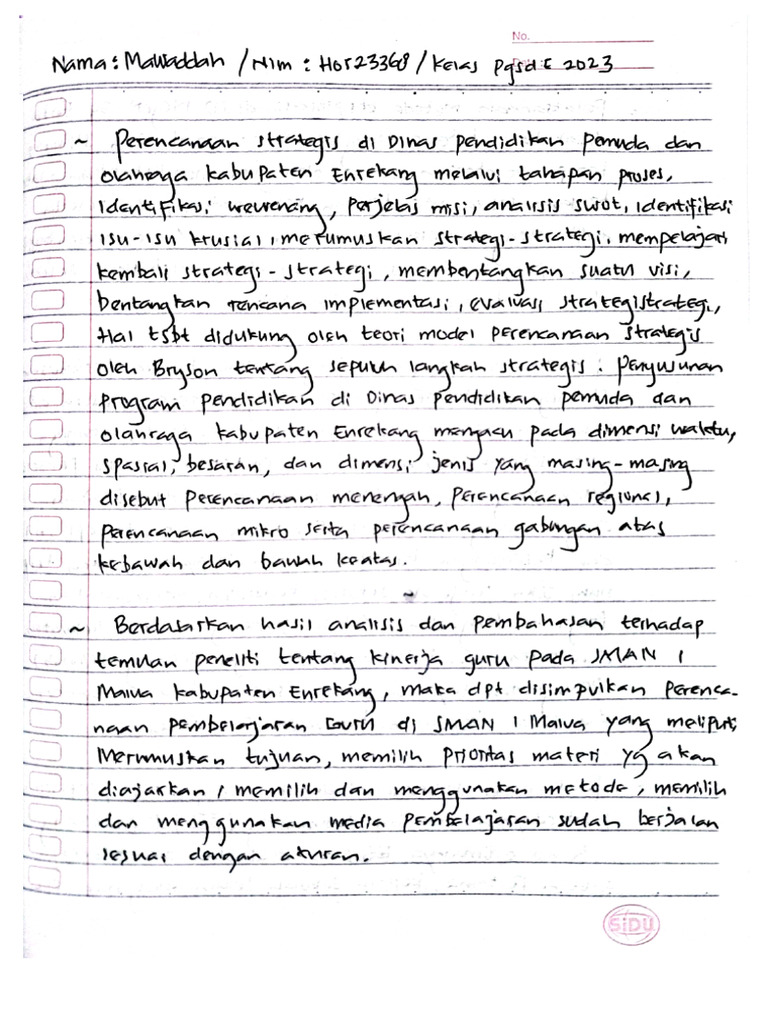 No.
Nama : Mawaddah / Nim : H0523368 / Kelas Pgsd E 2023
~ Perencanaan strategis di Dinas Pendidikan Pemuda dan
olahraga kabupaten Enrekang melalui tahapan proses,
Identifikasi wewenang, perjelas misi, analisis swot, Identifikasi
isu-isu krusial, merumuskan strategi-strategi, mempelajari
kembali strategi-strategi, membentangkan suatu visi,
bentangkan rencana implementasi, evaluasi strategistrategi,
Hal tsbt didukung oleh teori model perencanaan strategis
oleh Bryson tentang sepuluh langkah strategis : penyusunan
program pendidikan di Dinas pendidikan pemuda dan
olahraga kabupaten Enrekang mengacu pada dimensi waktu,
spasial, besaran, dan dimensi jenis yang masing-masing
disebut perencanaan menengah, perencanaan regional,
perencanaan mikro serta perencanaan gabungan atas
kebawah dan bawah keatas.
~
~ Berdasarkan hasil analisis dan pembahasan terhadap
temuan peneliti tentang kinerja guru pada SMAN 1
Maiwa kabupaten Enrekang, maka dpt disimpulkan perenca-
naan pembelarjaran Guru di SMAN 1 Maiwa yang meliputi
Merumuskan tujuan, memilih prioritas materi yg akan
diajarkan, memilih dan menggunakan metode, memilih
dan menggunakan media pembelajaran sudah berjalan
sesuai dengan aturan.
SiDU